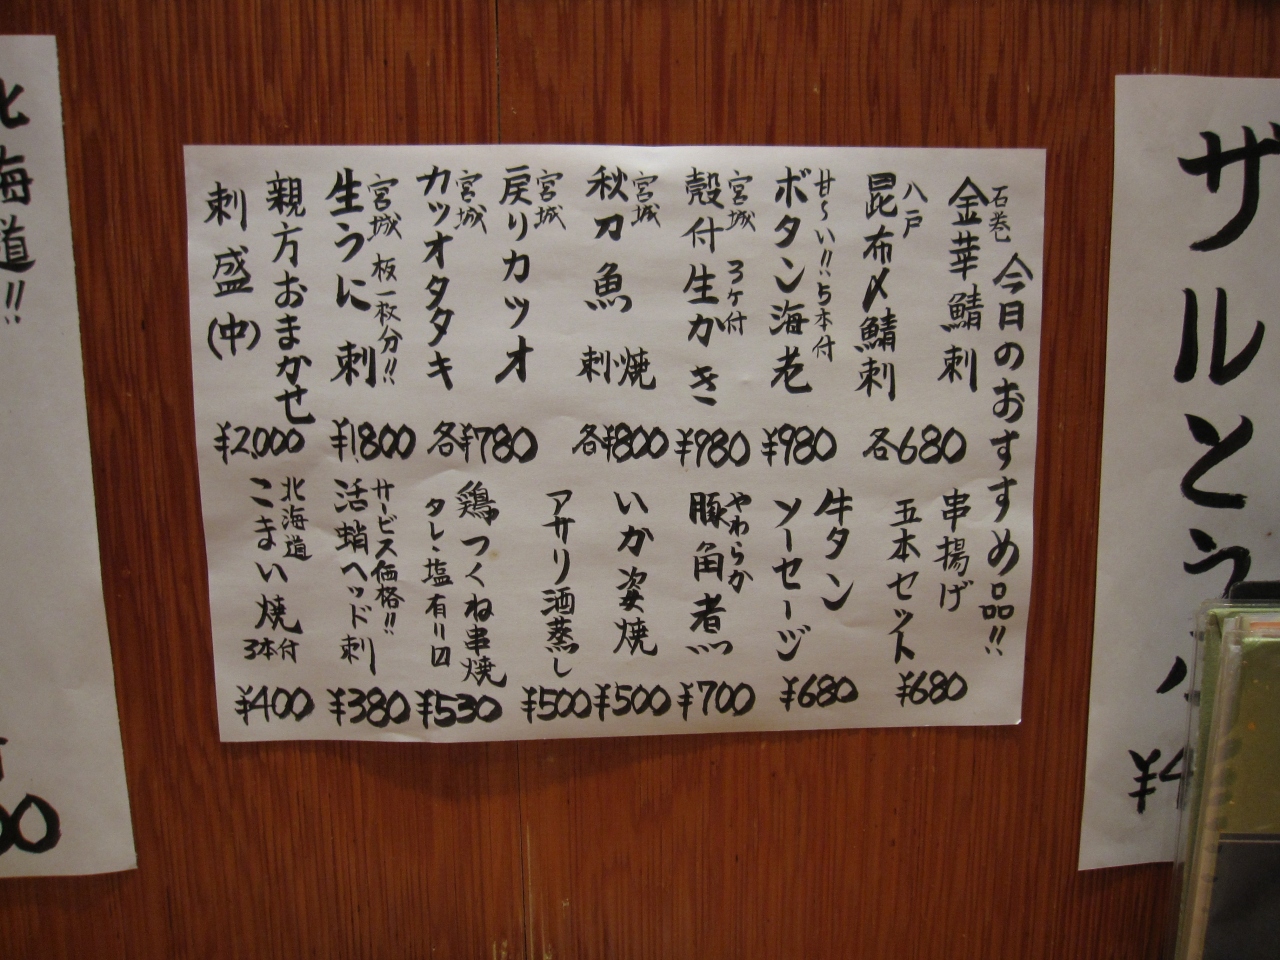 今日のおすすめ品!!
石巻
金華鯖刺
八戸
昆布〆鯖刺
各680
甘〜い!!5本付
ボタン海老
¥980
宮城 3ヶ付
殻付生かき
¥980
宮城
秋刀魚 刺 焼
各¥800
宮城
戻りカツオ
宮城
カツオタタキ
各¥780
宮城 板一枚分!!
生うに刺
¥1800
親方おまかせ
刺盛(中)
¥2000
串揚げ
五本セット
¥680
牛タン
ソーセージ
¥680
やわらか
豚角煮
¥700
いか姿焼
¥500
アサリ酒蒸し
¥500
鶏つくね串焼
タレ・塩有
¥530
サービス価格!!
活蛸ヘッド刺
¥380
北海道
こまい焼
3本付
¥400
北海道!!